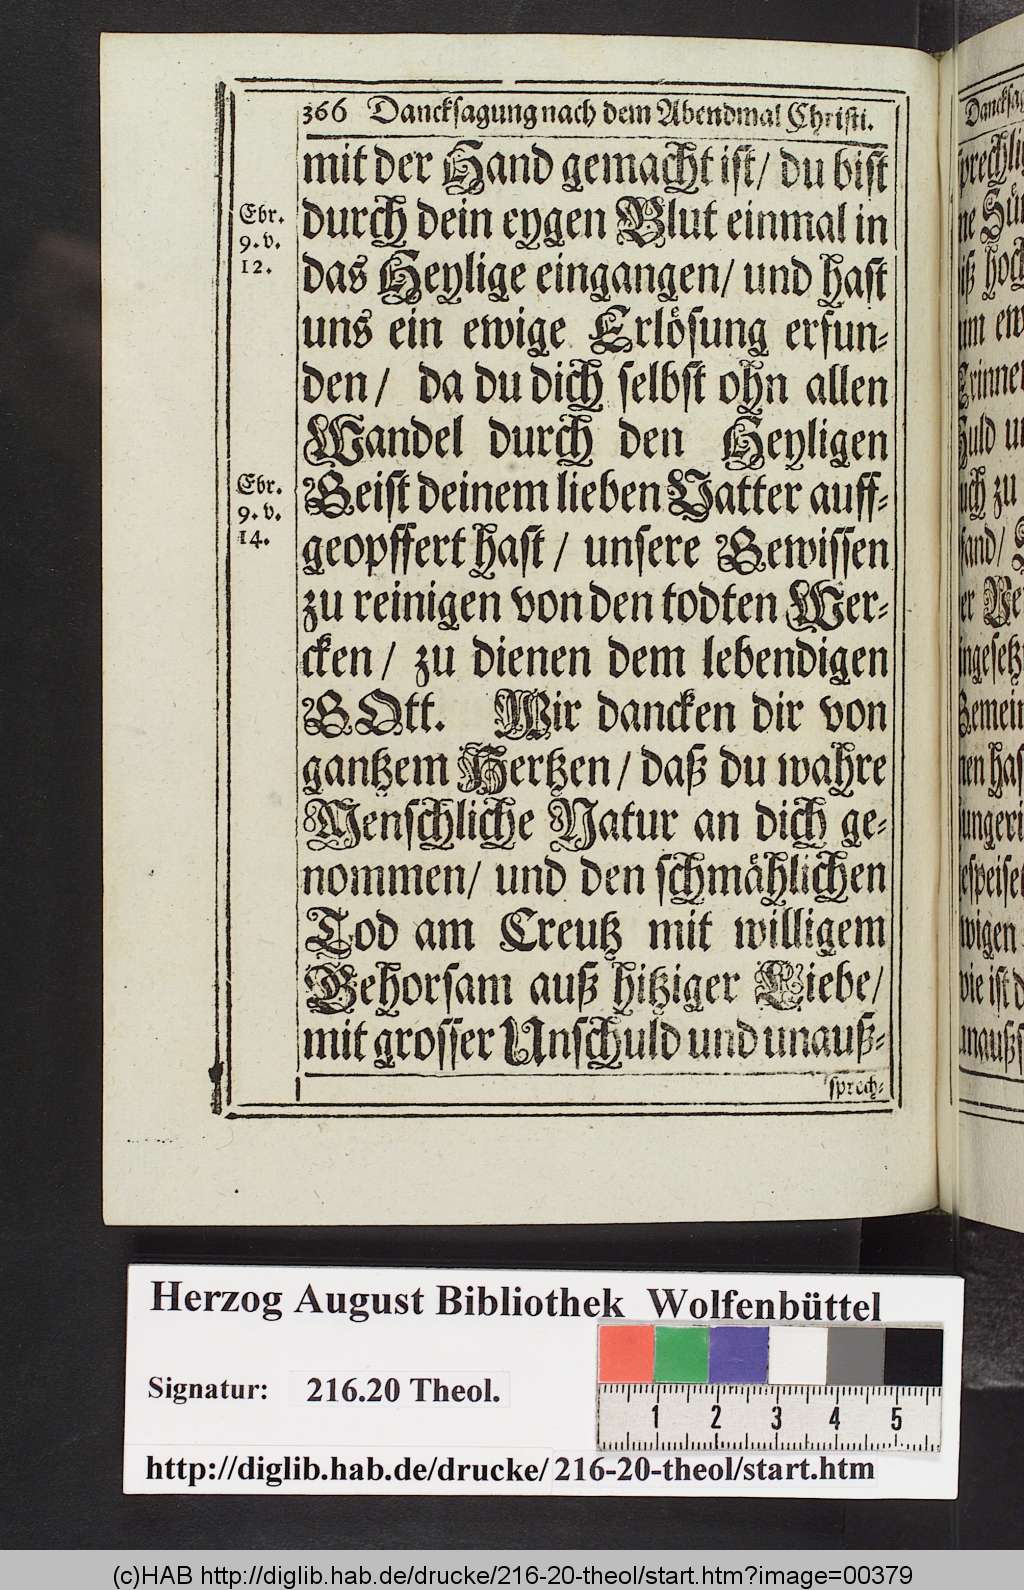 366 Dancksagung nach dem Abendmal Christi.
mit der Hand gemacht ist/ du bist
durch dein eygen Blut einmal in
das Heylige eingangen/ und hast
uns ein ewige Erlösung erfun-
den/ da du dich selbst ohn allen
Wandel durch den Heyligen
Geist deinem lieben Vatter auff-
geopffert hast/ unsere Gewissen
zu reinigen von den todten Wer-
cken/ zu dienen dem lebendigen
GOtt. Wir dancken dir von
gantzem Hertzen/ daß du wahre
Menschliche Natur an dich ge-
nommen/ und den schmählichen
Tod am Creutz mit willigem
Gehorsam auß hitziger Liebe/
mit grosser Unschuld und unauß-
sprech-
Ebr.
9. v.
12.
Ebr.
9. v.
14.
Herzog August Bibliothek Wolfenbüttel
Signatur: 216.20 Theol.
1 2 3 4 5
http://diglib.hab.de/drucke/216-20-theol/start.htm
(c)HAB http://diglib.hab.de/drucke/216-20-theol/start.htm?image=00379